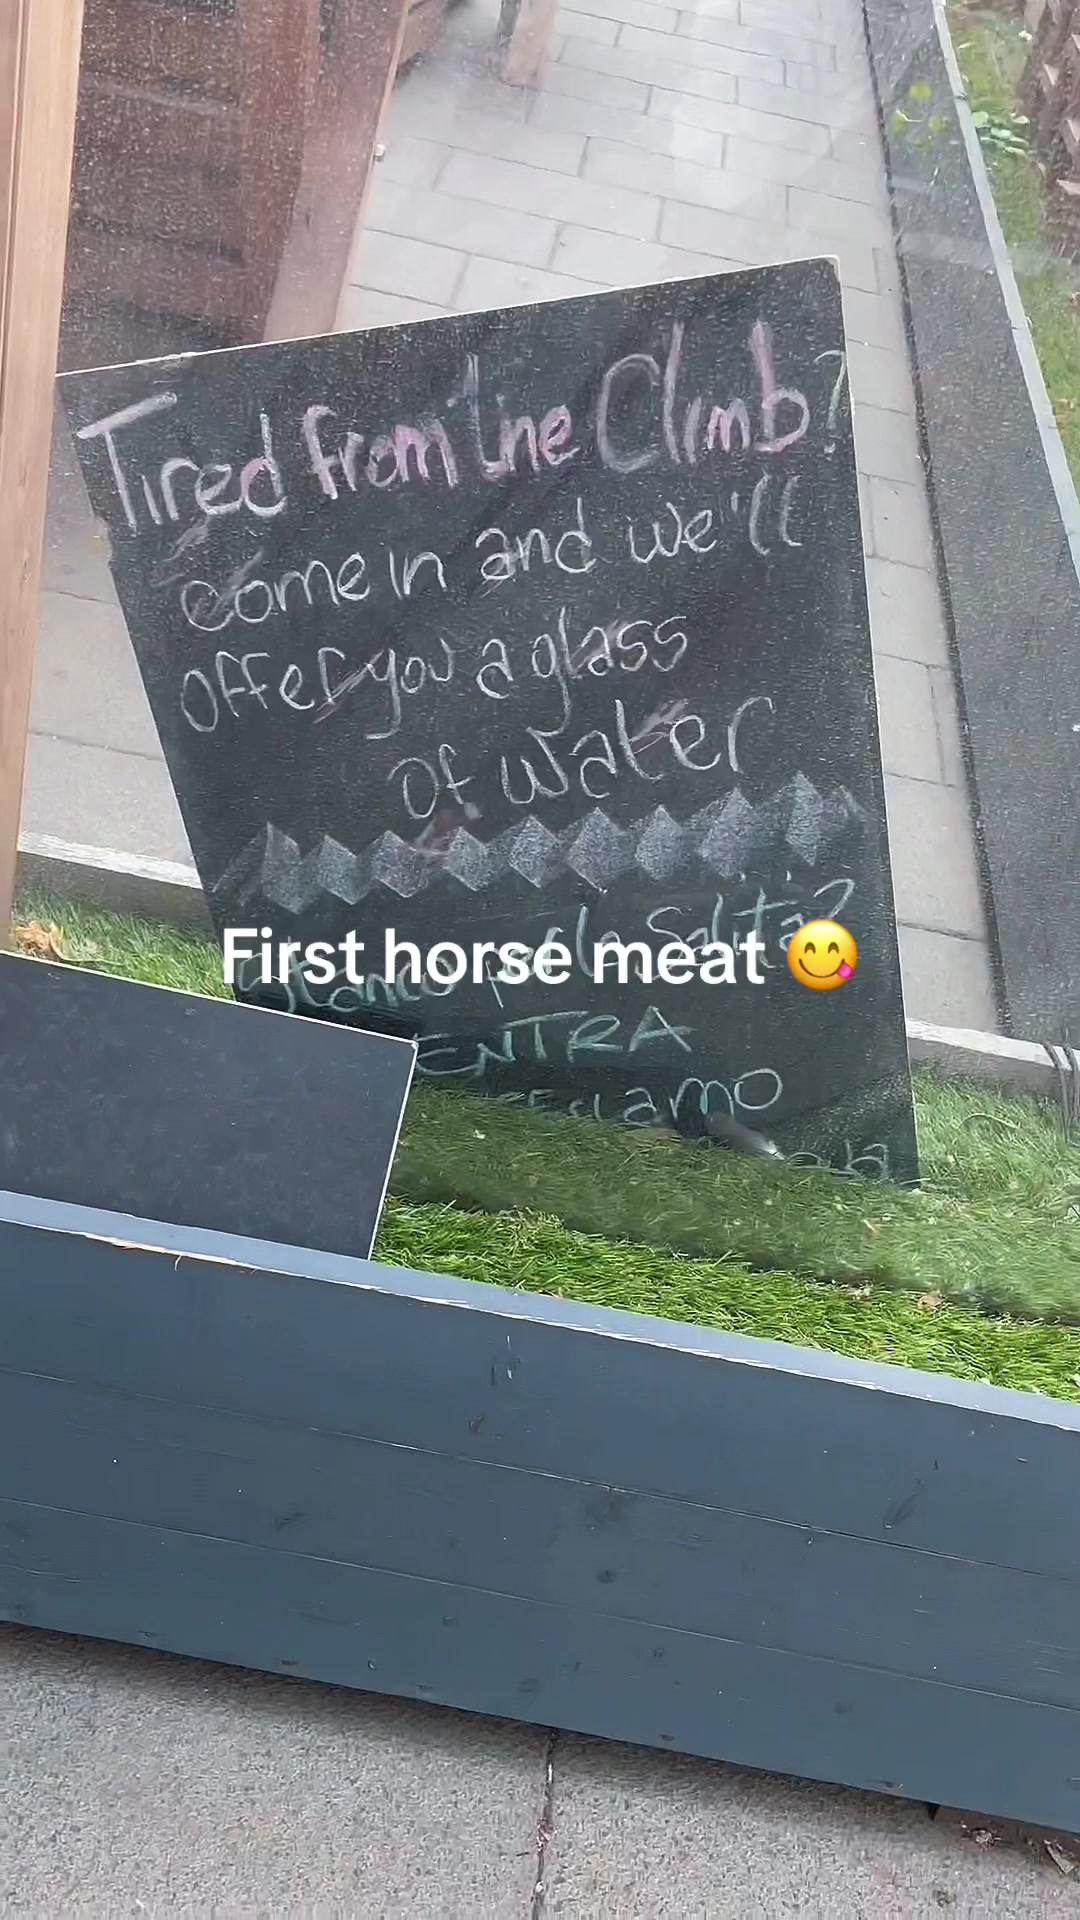 Tired from the Climb?
come in and we'll
offer you a glass
of water
Stanco per la Salita?
First horse meat 😋
ENTRA